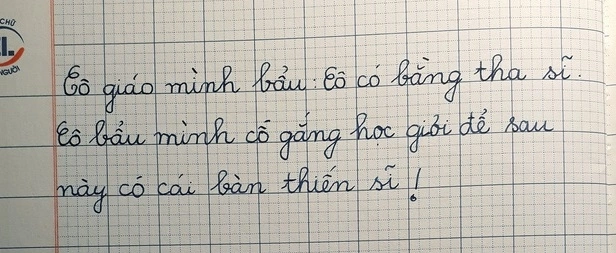 CHỮ
NGƯỜI
Cô giáo mình bẩu: Cô có bằng tha sĩ.
Cô bẩu mình cố gắng học giỏi để sau
này có cái bàn thiến sĩ!